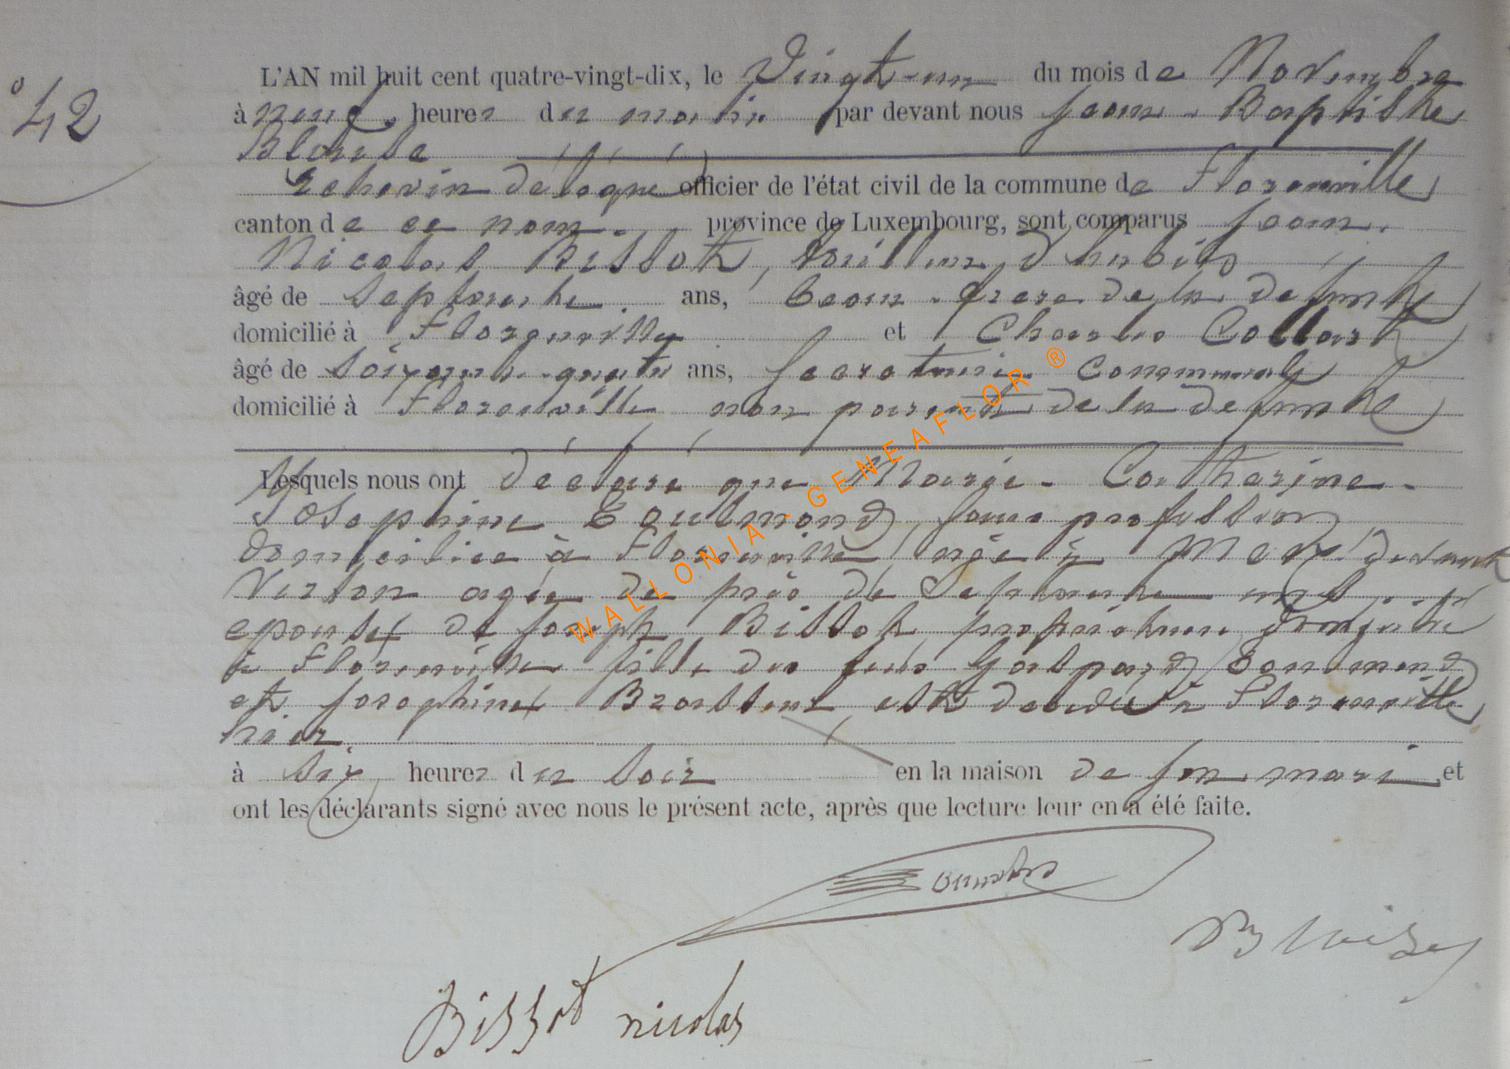 ° 42
L'AN mil huit cent quatre-vingt-dix, le Vingt-un du mois de Novembre
à neuf heures du matin par devant nous Jean-Baptiste
Blaise
Echevin délégué officier de l'état civil de la commune de Florenville
canton de ce nom. province de Luxembourg, sont comparus Jean.
Nicolas Bissot, tailleur d'habits
âgé de Septante ans, beau-frère de la défunte
domicilié à Florenville et Charles Collart
âgé de Soixante-quatre ans, Secrétaire Communal
domicilié à Florenville non parent de la défunte
Lesquels nous ont déclaré que Marie-Catherine-
Joséphine sans profession
domiciliée à Florenville, née à Meix devant
Virton agée de près de Septante ans
epouse de Joseph Bissot, propriétaire domicilié
à Florenville fille des feus Gaspard
et Josephine est décédée à Florenville
hier
à six heures du soir en la maison de son mari et
ont les déclarants signé avec nous le présent acte, après que lecture leur en a été faite.
Blaise
Bissot nicolas
WALLONIA-GENEAFLOR ®